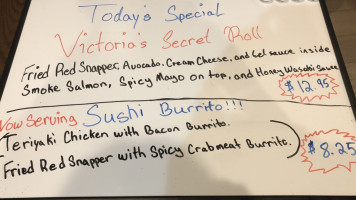 Today's Special
Victoria's Secret Roll
Fried Red Snapper, Avocado, Cream Cheese, and Eel sauce inside
Smoke Salmon, Spicy Mayo on top, and Honey Wasabi Sauce
$12.95
Now Serving Sushi Burrito!!!
Teriyaki Chicken with Bacon Burrito.
Fried Red Snapper with Spicy Crabmeat Burrito.
$8.25